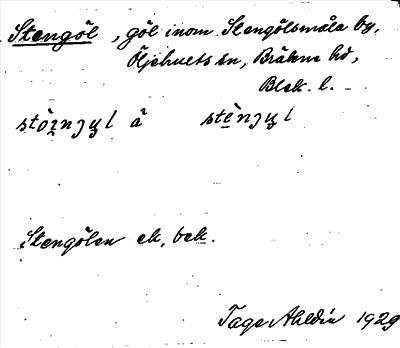 Stengöl, göl inom Stengölsmåla by,
Öljehults sn, Bräkne hd,
Blek. l.
stòi̯nȷyl å stènȷyl
Stengölen ek, bek.
Tage Ahldin 1929